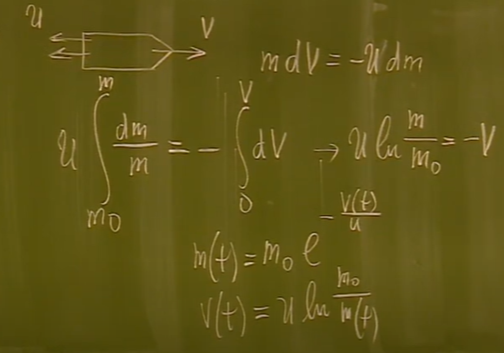 u V
m dV = -u dm
u ∫_{m_0}^{m} dm/m = - ∫_{0}^{V} dV → u ln m/m_0 = -V
m(t) = m_0 e^{-V(t)/u}
V(t) = u ln m_0/m(t)